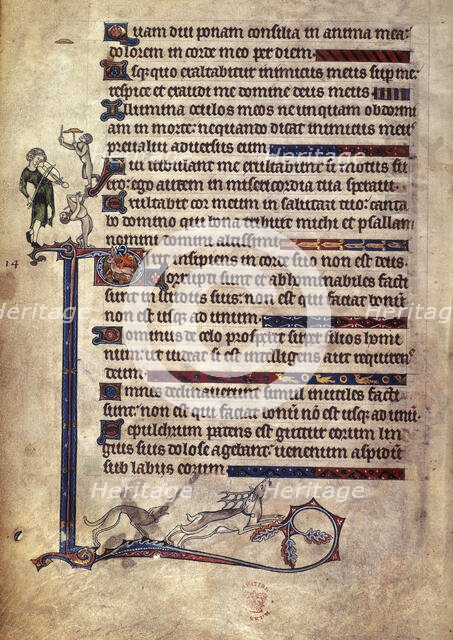 Quam diu ponam consilia in anima mea:
dolorem in corde meo per diem.
Usq; quo exaltabitur inimicus meus sup me:
respice et exaudi me domine deus meus.
Illumina oculos meos ne unquam obdormi
am in morte: nequando dicat inimicus meus
prevalui adversus eum.
Qui tribulant me exultabunt si motus fu
ero: ego autem in misericordia tua speravi.
Exultabit cor meum in salutari tuo: canta
bo domino qui bona tribuit michi et psallam
nomini domini altissimi.
14
Dixit insipiens in corde suo non est
deus.
Corrupti sunt et abhominabiles facti
sunt in studiis suis: non est qui faciat bonū
non est usq; ad unum.
Dominus de celo prospexit super filios homi
num: ut videat si est intelligens aut requirens
deum.
Omnes declinaverunt simul inutiles facti
sunt: non est qui faciat bonū nō est usq; ad unū.
Sepulchrum patens est guttur eorum lin
guis suis dolose agebant: venenum aspidū
sub labiis eorum.
Heritage Images
Heritage Images
Heritage Images
Heritage Images
Heritage Images
Heritage Images